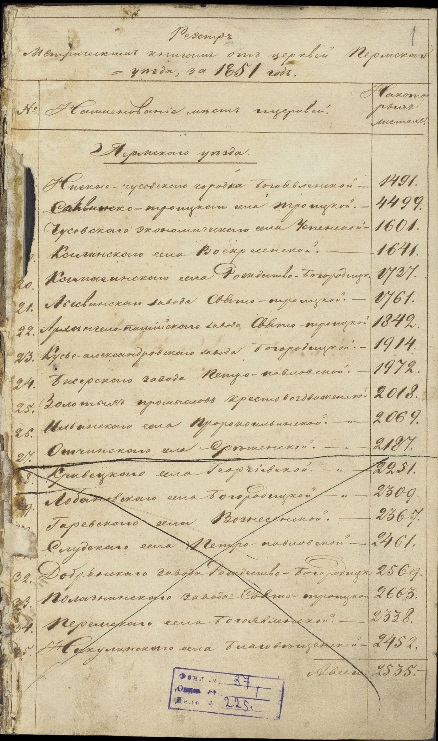 1
Реэстръ
Метрическимъ книгамъ отъ церквей Пермскаго
уѣзда, за 1851 годъ.
№ Наименованіе мѣстъ и церквей. На которомъ листѣ
Пермскаго уѣзда.
Нижне-чусовскаго городка Богоявленской — 1491.
троицкаго села троицкой. — 4499.
Чусовскаго экономическаго села Успенской — 1601.
села Воскресенской. — 1641.
20. села Рождество-Богородицк 1727.
21. Лысвинскаго завода Свято-троицкой — 1761.
22. Архангело-пашійскаго завода Свято-троицкой 1842.
23. Кусье-александровскаго завода Богородицкой — 1914.
24. Бисерскаго завода Петро-павловской. — 1972.
25. Золотыхъ промысловъ крестовоздвиженской 2018.
26. Ильинскаго села Пророкоильинской. — 2069.
27. села Срѣтенской. — 2187.
села Георгіевской. — 2251.
29. Лобановскаго села Богородицкой — 2309.
Гаревскаго села Вознесенской. — 2367.
Слудскаго села Петро-павловской — 2461.
32. Добрянскаго завода Рождество-Богородицк 2569.
33. Полазнинскаго завода Свято-троицкой 2663.
34. села Богоявленской. — 2338.
села Благовѣщенской — 2452.
2535.
Фонд № 37
Опись № 1
Дело № 225